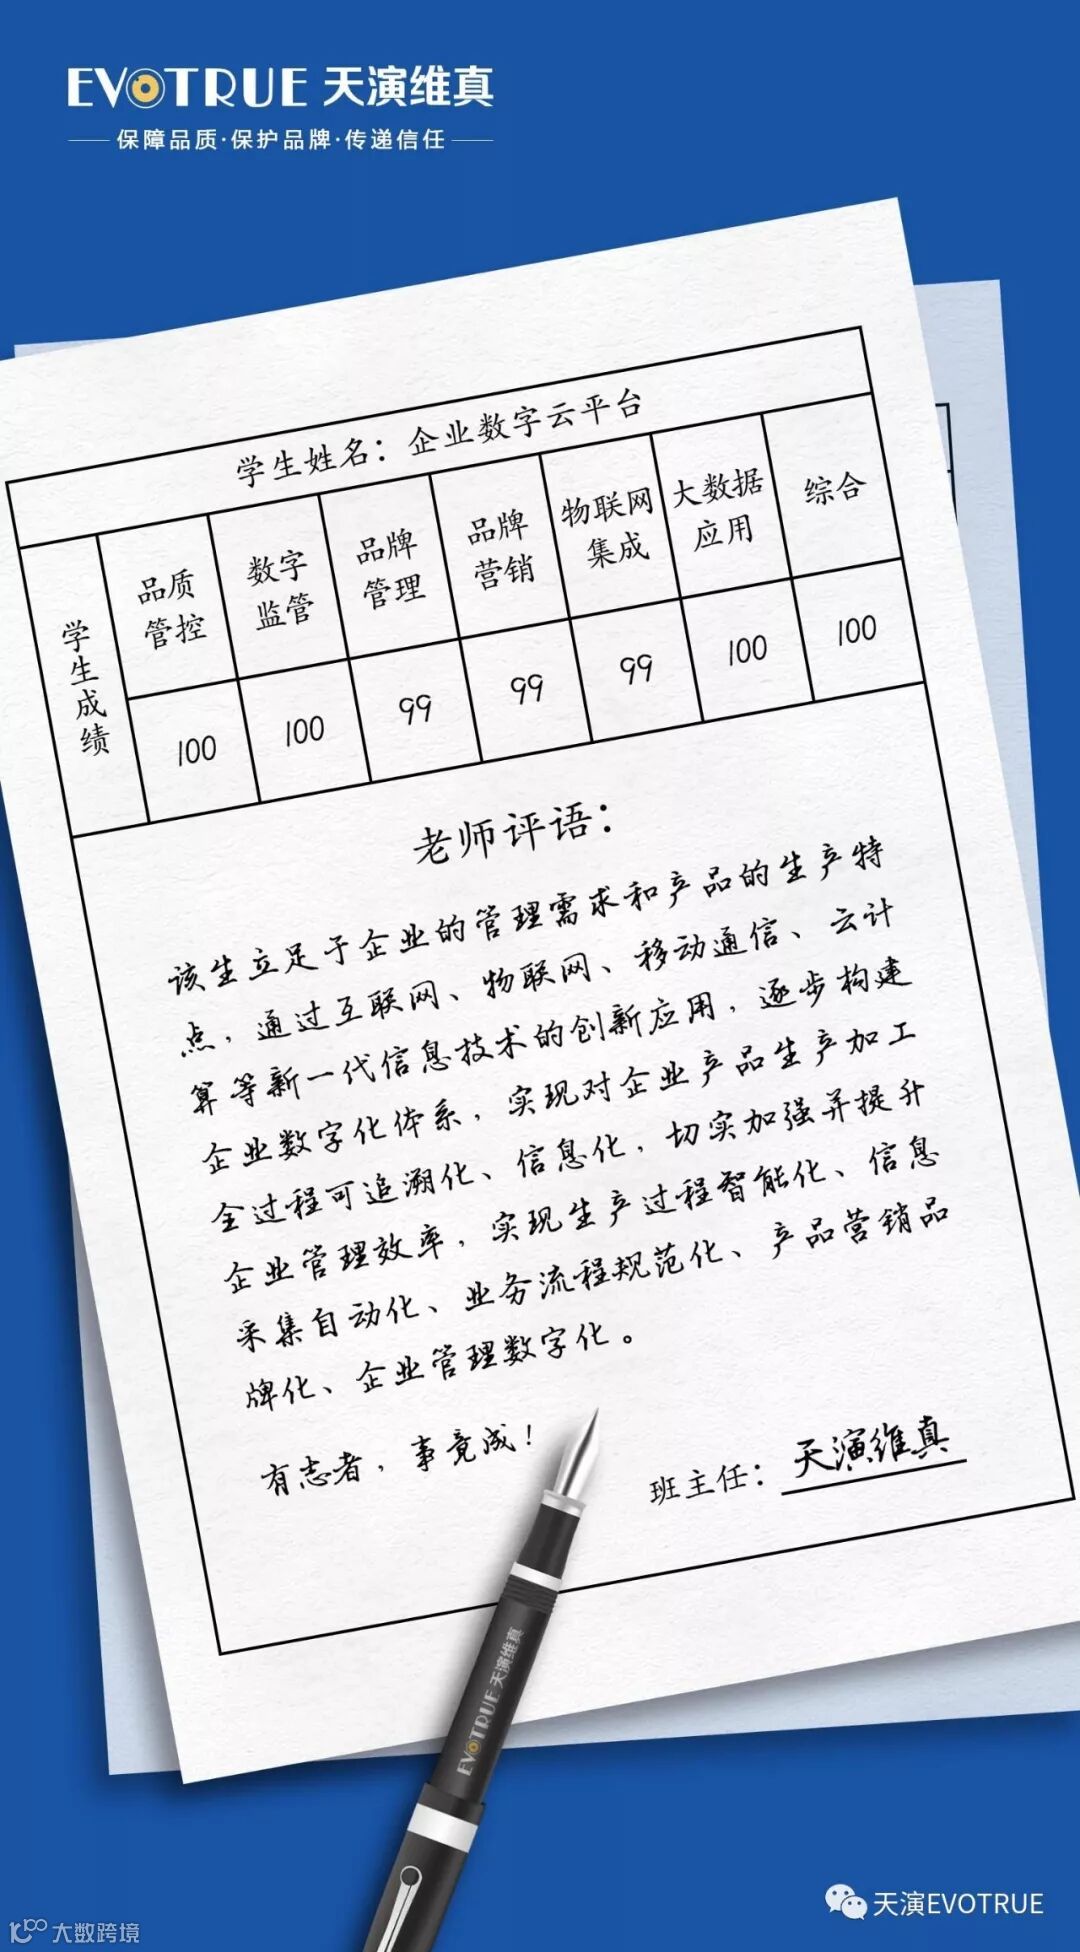 EVOTRUE 天演维真
保障品质·保护品牌·传递信任
学生姓名：企业数字云平台
学生成绩
品质管控
数字监管
品牌管理
品牌营销
物联网集成
大数据应用
综合
100
100
99
99
99
100
100
老师评语：
该生立足于企业的管理需求和产品的生产特
点，通过互联网、物联网、移动通信、云计
算等新一代信息技术的创新应用，逐步构建
企业数字化体系，实现对企业产品生产加工
全过程可追溯化、信息化，切实加强并提升
企业管理效率，实现生产过程智能化、信息
采集自动化、业务流程规范化、产品营销品
牌化、企业管理数字化。
有志者，事竟成！
班主任：天演维真
EVOTRUE 天演维真
天演EVOTRUE
大数跨境